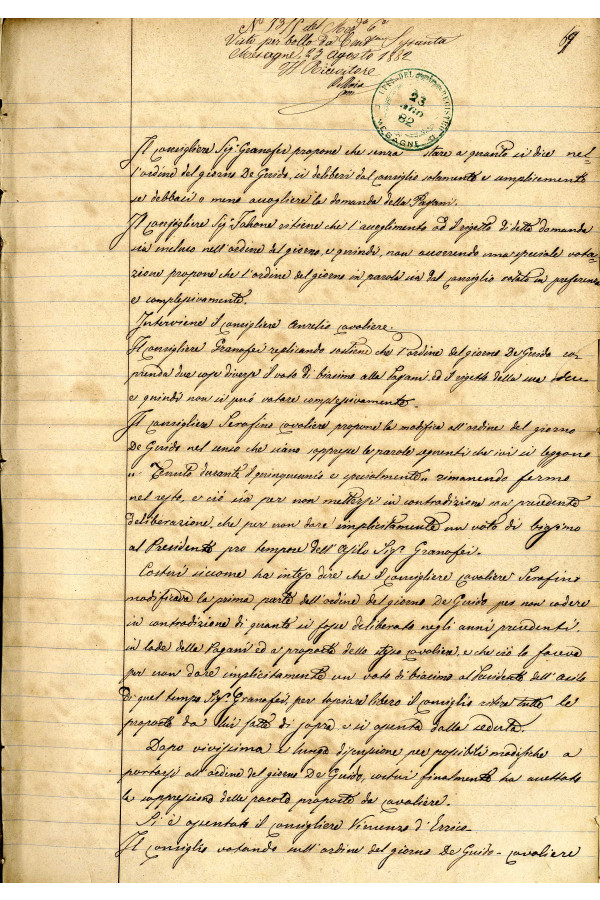 N° 1311 del Mod° 6°
Visto per bollo da Cent.
Mesagne, 23 Agosto 1882
Il Ricevitore
69
23
AGO
82
Il Consigliere Sig.r Granafei propone che senza stare a quanto si dice nel
l'ordine del giorno De Guido, si deliberi dal Consiglio solamente e semplicemente
se debbasi o meno accogliere la domanda della Pagani.
Il Consigliere Sig.r Tahone ritiene che l'accoglimento ed il rigetto di detta domanda
sia incluso nell'ordine del giorno, e quindi, non occorrendo una speciale vota-
zione propone che l'ordine del giorno in parola sia dal Consiglio votato in preferenza
e complessivamente.
Interviene il Consigliere Aurelio Cavaliere.
Il Consigliere Granafei replicando sostiene che l'ordine del giorno De Guido com
prenda due cose diverse il voto di biasimo alla Pagani, ed il rigetto della sua
e quindi non si può votare complessivamente.
Il Consigliere Serafino Cavaliere propone la modifica all'ordine del giorno
De Guido nel senso che siano soppresse le parole seguenti che ivi si leggono
" Tenuto durante il quinquennio e specialmente " rimanendo fermo
nel resto, e ciò sia per non mettersi in contradizione con precedente
deliberazione, che per non dare implicitamente un voto di biasimo
al Presidente pro tempore dell'Asilo Sig.r Granafei.
Costui siccome ha inteso dire che il Consigliere Cavaliere Serafino
modificava la prima parte dell'ordine del giorno De Guido per non cadere
in contradizione di quanto si fosse deliberato negli anni precedenti,
in lode della Pagani ed a proposta dello stesso Cavaliere, e che ciò lo faceva
per non dare implicitamente un voto di biasimo al Presidente dell'Asilo
di quel tempo Sig.r Granafei, per lasciare libero il Consiglio ritira tutte le
proposte da lui fatte di sopra e si assenta dalla seduta.
Dopo vivissima e lunga discussione per possibili modifiche a
portarsi all'ordine del giorno De Guido, costui finalmente ha accettato
la soppressione delle parole proposte da Cavaliere.
Si è assentato il Consigliere Vincenzo d'Errico.
Il Consiglio votando sull'ordine del giorno De Guido-Cavaliere